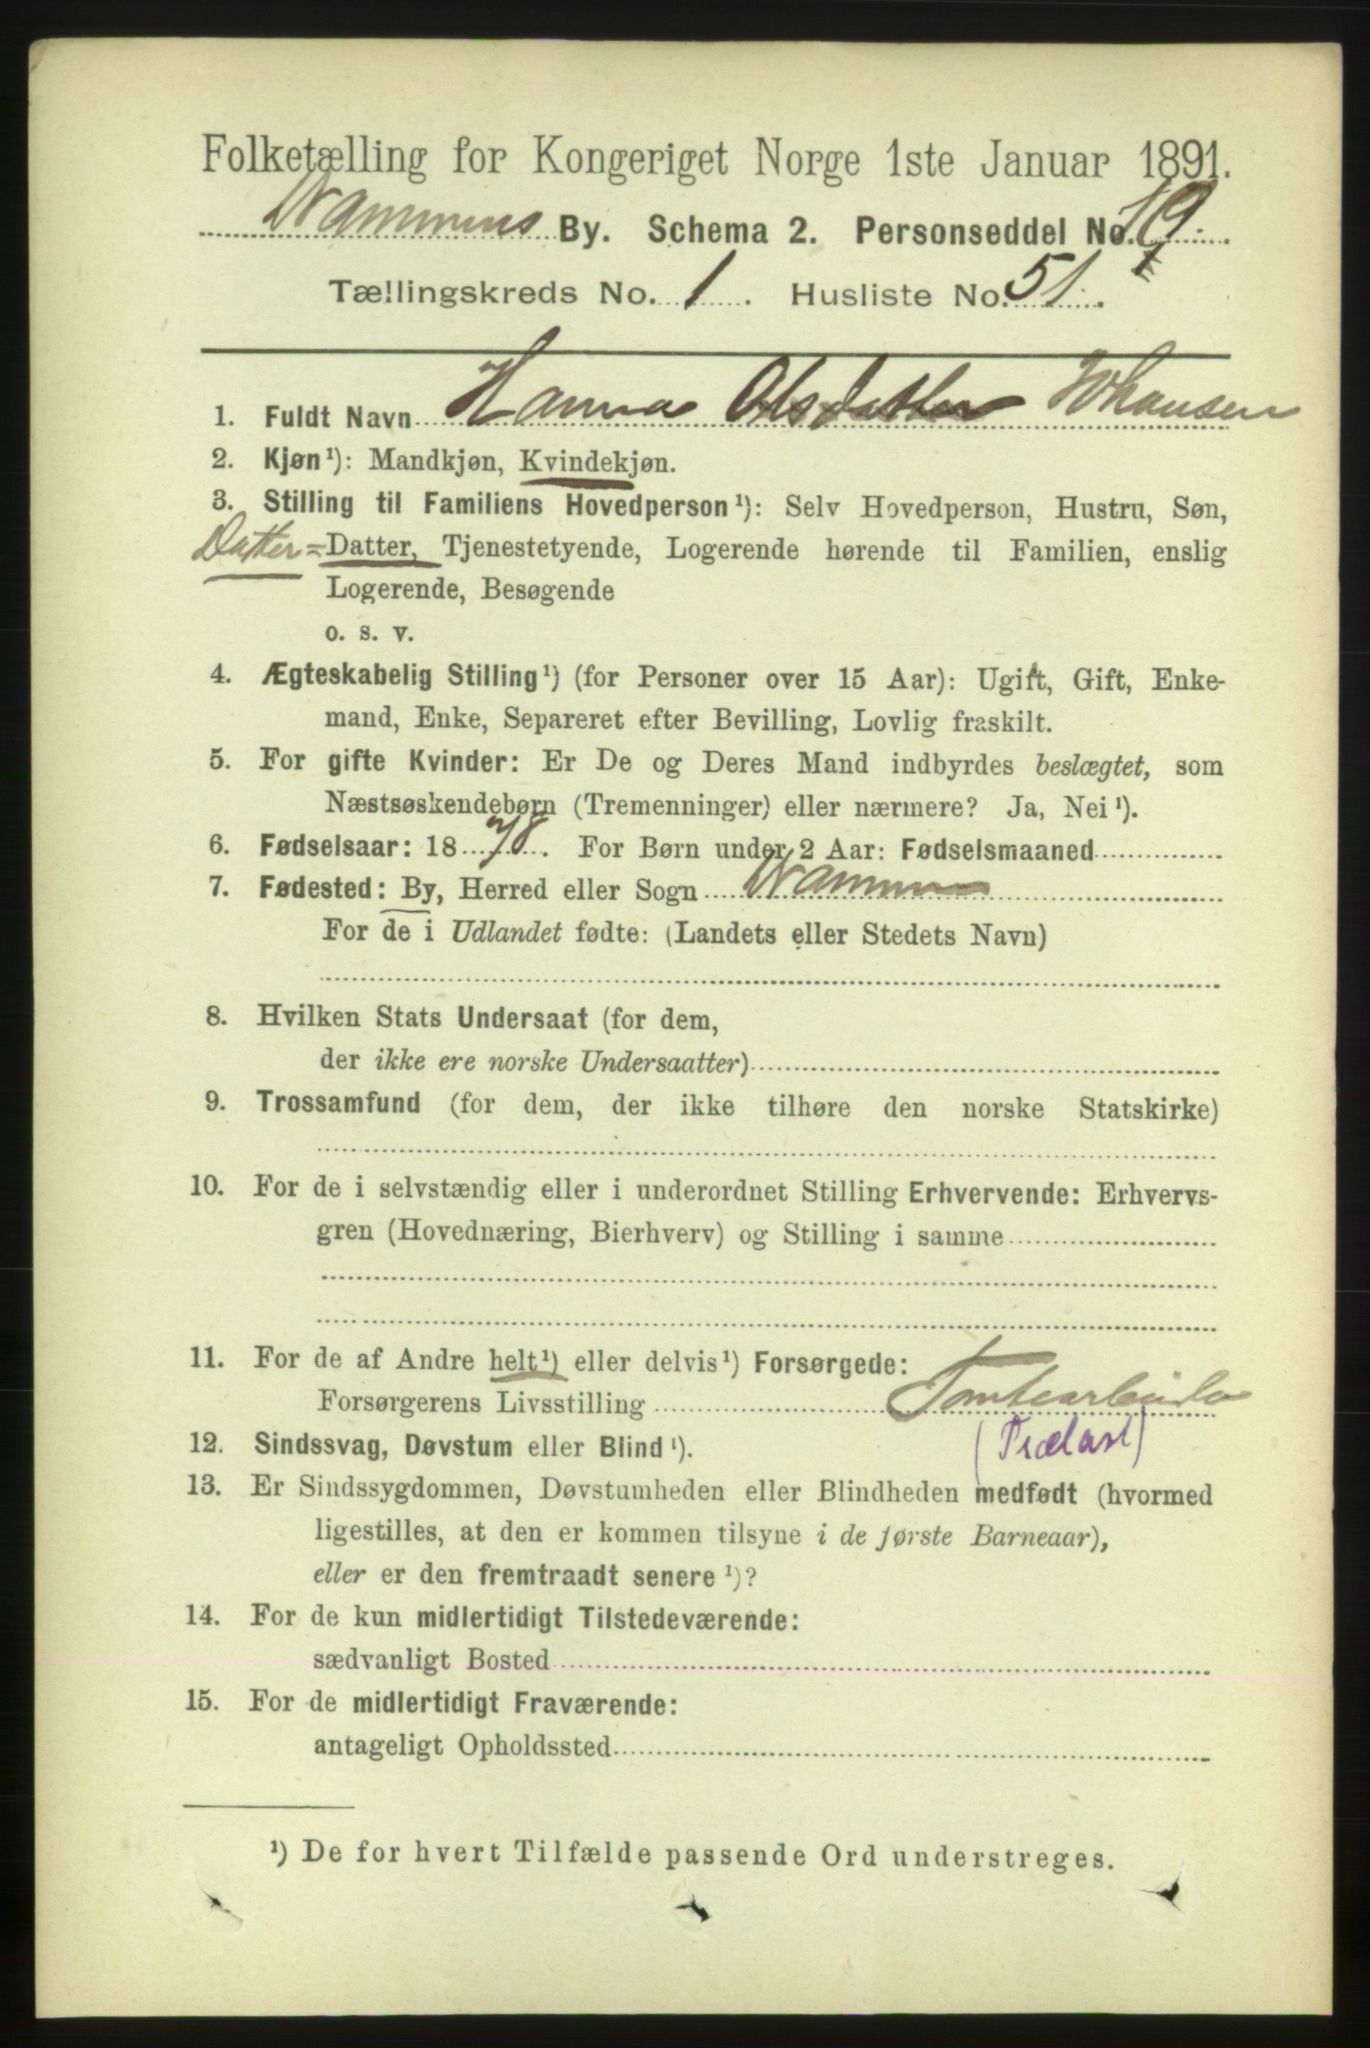 Folketælling for Kongeriget Norge 1ste Januar 1891.
Drammens By. Schema 2. Personseddel No. 19.
Tællingskreds No. 1. Husliste No. 51.
1. Fuldt Navn Hanna Olsdatter Johansen
2. Kjøn¹): Mandkjøn, Kvindekjøn.
3. Stilling til Familiens Hovedperson¹): Selv Hovedperson, Hustru, Søn,
Datter = Datter, Tjenestetyende, Logerende hørende til Familien, enslig
Logerende, Besøgende
o. s. v.
4. Ægteskabelig Stilling¹) (for Personer over 15 Aar): Ugift, Gift, Enke-
mand, Enke, Separeret efter Bevilling, Lovlig fraskilt.
5. For gifte Kvinder: Er De og Deres Mand indbyrdes beslægtet, som
Næstsøskendebørn (Tremenninger) eller nærmere? Ja, Nei¹).
6. Fødselsaar: 1878. For Børn under 2 Aar: Fødselsmaaned
7. Fødested: By, Herred eller Sogn Drammen
For de i Udlandet fødte: (Landets eller Stedets Navn)
8. Hvilken Stats Undersaat (for dem,
der ikke ere norske Undersaatter)
9. Trossamfund (for dem, der ikke tilhøre den norske Statskirke)
10. For de i selvstændig eller i underordnet Stilling Erhvervende: Erhvervs-
gren (Hovednæring, Bierhverv) og Stilling i samme
11. For de af Andre helt¹) eller delvis¹) Forsørgede:
Forsørgerens Livsstilling Tomtearbeider
(Trælast)
12. Sindssvag, Døvstum eller Blind¹).
13. Er Sindssygdommen, Døvstumheden eller Blindheden medfødt (hvormed
ligestilles, at den er kommen tilsyne i de første Barneaar),
eller er den fremtraadt senere¹)?
14. For de kun midlertidigt Tilstedeværende:
sædvanligt Bosted
15. For de midlertidigt Fraværende:
antageligt Opholdssted
¹) De for hvert Tilfælde passende Ord understreges.